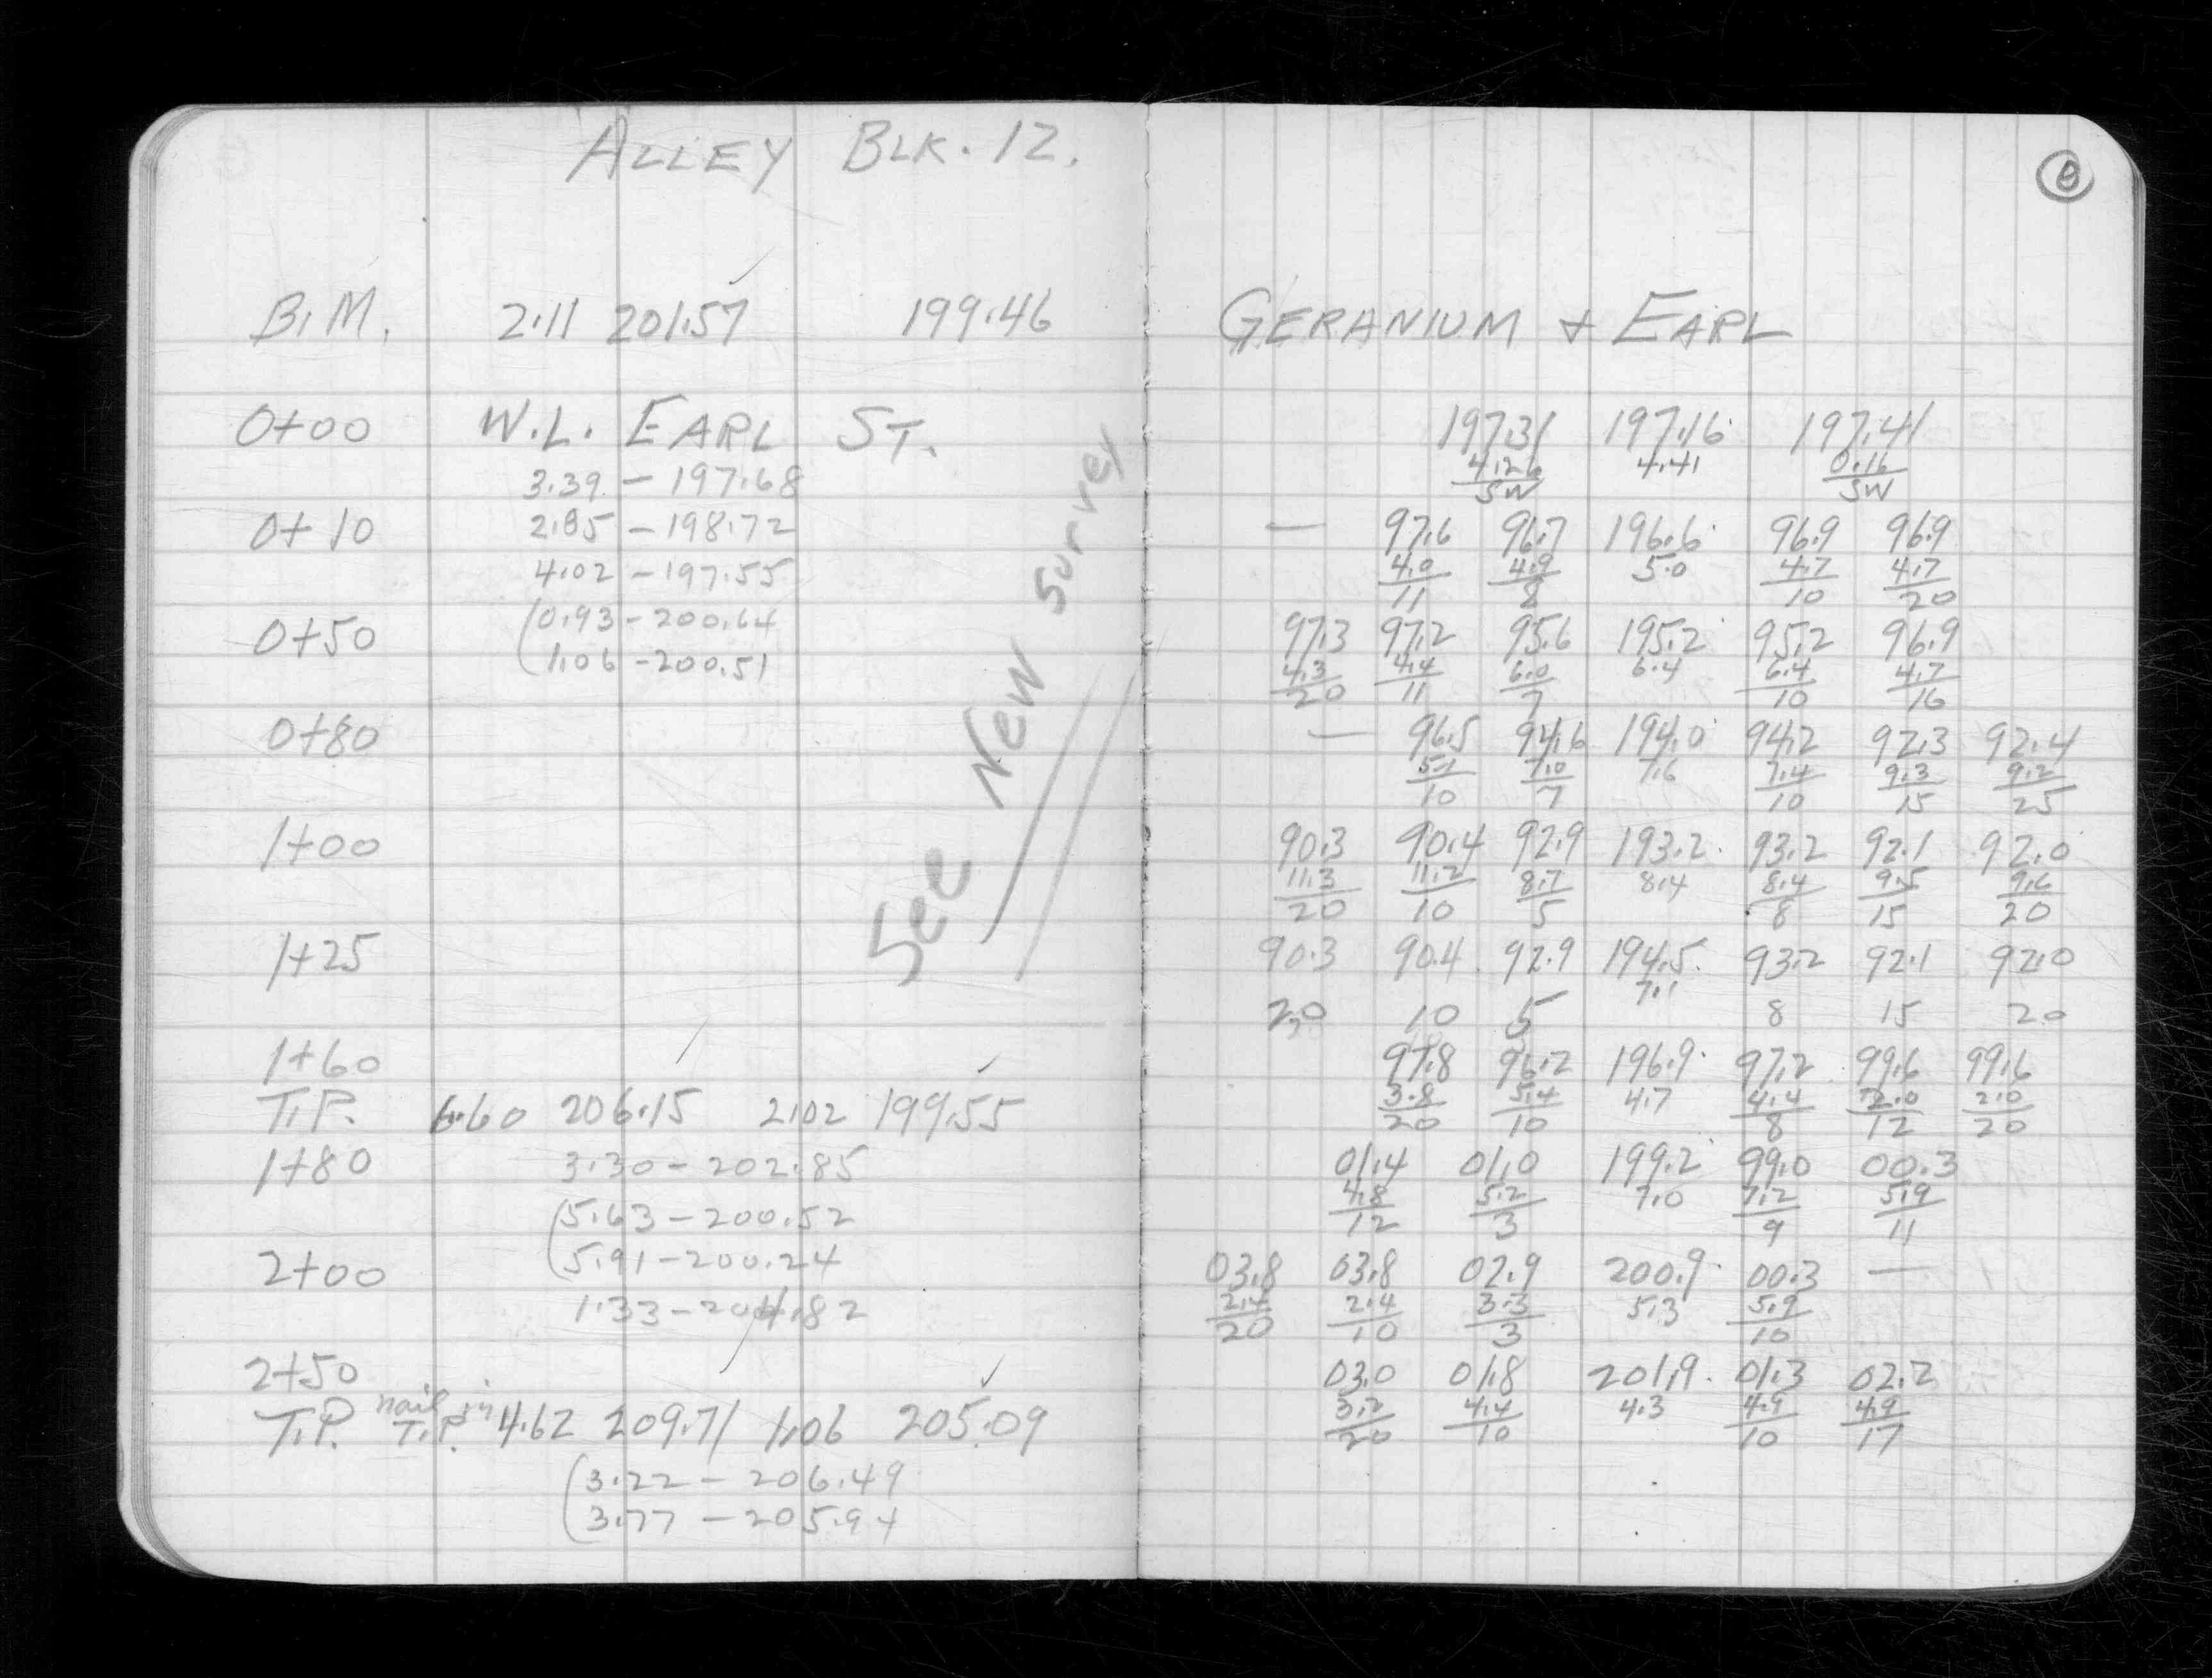 ALLEY BLK. 12.
B.M. 2.11 201.57 199.46
0+00 W.L. EARL ST.
3.39 - 197.68
0+10 2.85 - 198.72
4.02 - 197.55
0+50 (0.93 - 200.64
(1.06 - 200.51
0+80
1+00
1+25
See New Survey
1+60
T.P. 6.60 206.15 2.02 199.55
1+80 3.30 - 202.85
(5.63 - 200.52
2+00 (5.91 - 200.24
1.33 - 204.82
2+50
T.P. nail in T.P. 4.62 209.71 1.06 205.09
(3.22 - 206.49
(3.77 - 205.94
GERANIUM + EARL
197.31 197.16 197.41
4.26 4.41 0.16
SW SW
— 97.6 96.7 196.6 96.9 96.9
4.0 4.9 5.0 4.7 4.7
11 8 10 20
97.3 97.2 95.6 195.2 95.2 96.9
4.3 4.4 6.0 6.4 6.4 4.7
20 11 7 10 16
— 96.5 94.6 194.0 94.2 92.3 92.4
5.1 7.0 7.6 7.4 9.3 9.2
10 7 10 15 25
90.3 90.4 92.9 193.2 93.2 92.1 92.0
11.3 11.2 8.7 8.4 8.4 9.5 9.6
20 10 5 8 15 20
90.3 90.4 92.9 194.5 93.2 92.1 92.0
7.1
20 10 5 8 15 20
97.8 96.2 196.9 97.2 99.6 99.6
3.8 5.4 4.7 4.4 2.0 2.0
20 10 8 12 20
01.4 01.0 199.2 99.0 00.3
4.8 5.2 7.0 7.2 5.9
12 3 9 11
03.8 03.8 02.9 200.9 00.3 —
2.4 2.4 3.3 5.3 5.9
20 10 3 10
03.0 01.8 201.9 01.3 02.2
3.2 4.4 4.3 4.9 4.9
20 10 10 17